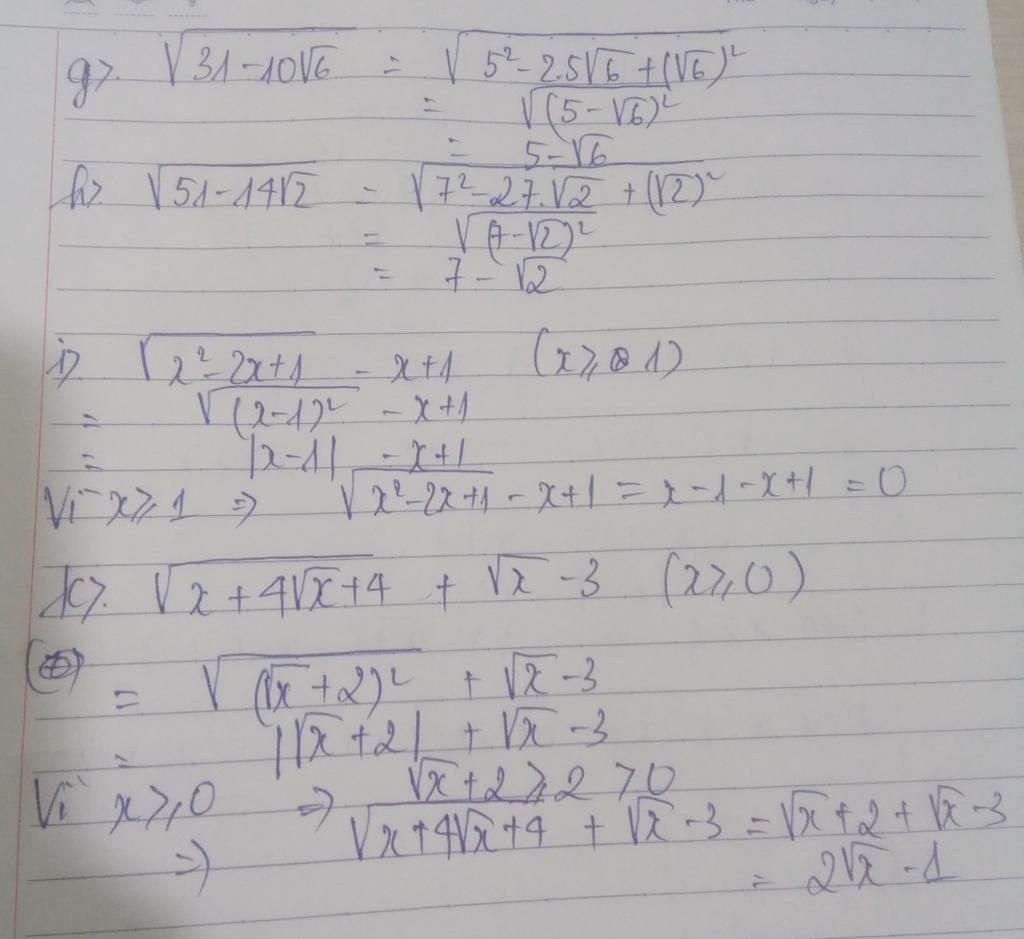 g>. √(31-10√6) = √(5²-2.5√6+(√6)²)
= √((5-√6)²)
= 5-√6
h>. √(51-14√2) = √(7²-27.√2+(√2)²)
= √((7-√2)²)
= 7-√2
i> √(x²-2x+1) - x+1 (x≥1)
= √((x-1)²) - x+1
= |x-1| - x+1
Vì x≥1 ⇒ √(x²-2x+1) - x+1 = x-1-x+1 = 0
k>. √(x+4√x+4) + √x -3 (x≥0)
= √((√x+2)²) + √x -3
= |√x+2| + √x -3
Vì x≥0 ⇒ √x+2≥2>0
⇒ √(x+4√x+4) + √x -3 = √x+2+√x-3
= 2√x -1